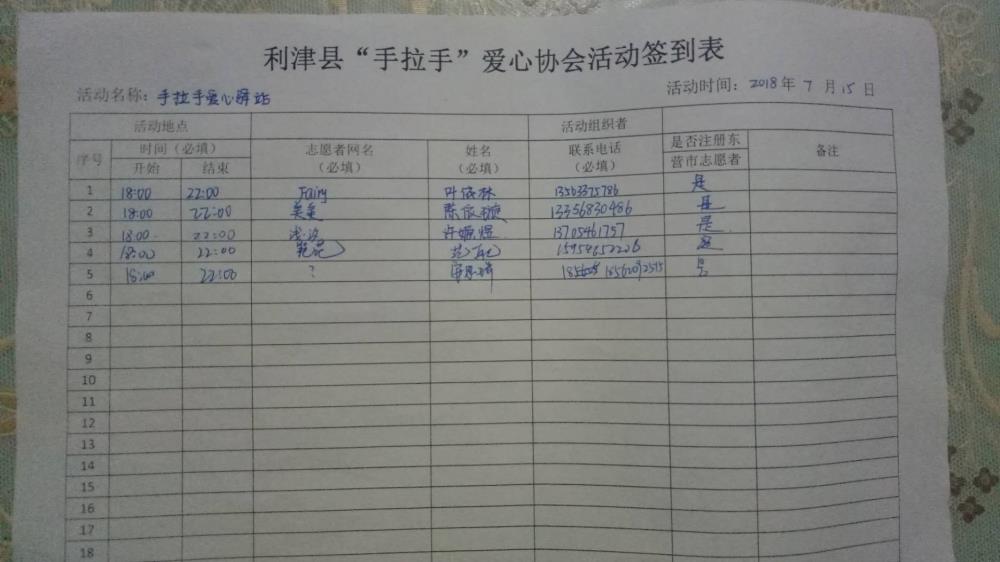 利津县“手拉手”爱心协会活动签到表
活动名称：手拉手爱心驿站 活动时间：2018年 7 月 15 日
活动地点 活动组织者
序号 时间（必填） 志愿者网名 姓名 联系电话 是否注册东 备注
开始 结束 （必填） （必填） （必填） 营市志愿者
1 18:00 22:00 Fairy 叶依林 13563375786 是
2 18:00 22:00 13356830486 是
3 18:00 22:00 浅汐 许 13705461757 是
4 18:00 22:00 范 15954652226
5 18:00 22:00 ?
6
7
8
9
10
11
12
13
14
15
16
17
18